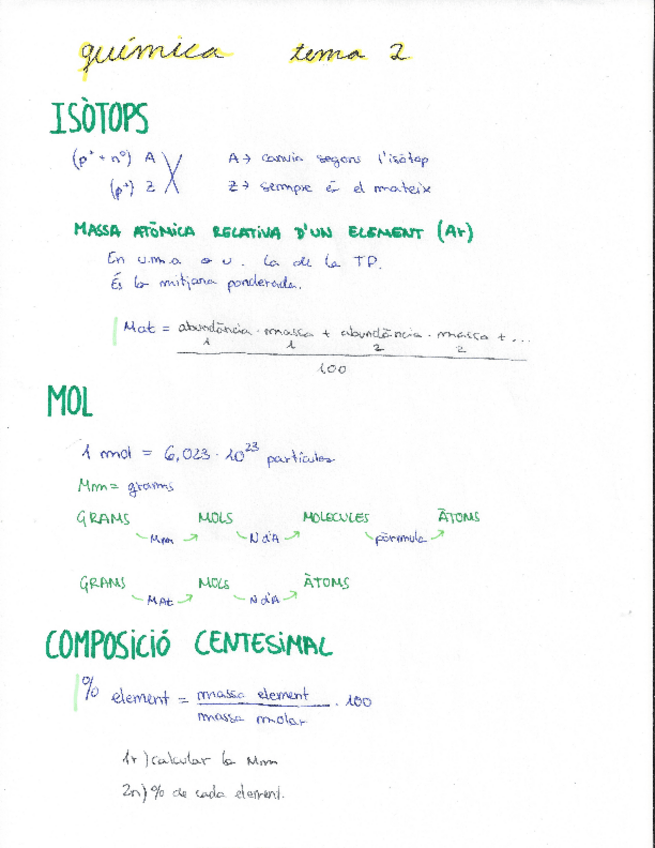 química tema 2
ISÒTOPS
(p⁺ + n⁰) A X A → canvia segons l'isòtop
(p⁺) Z Z → sempre és el mateix
MASSA ATÒMICA RELATIVA D'UN ELEMENT (Ar)
En u.m.a o u. la de la TP.
És la mitjana ponderada.
Mat = abundància 1 · massa 1 + abundància 2 · massa 2 + ...
100
MOL
1 mol = 6,023 · 10²³ partícules
Mm = grams
GRAMS MOLS MOLÈCULES ÀTOMS
Mm → N d'A → fórmula →
GRAMS MOLS ÀTOMS
MAt → N d'A →
COMPOSICIÓ CENTESIMAL
% element = massa element · 100
massa molar
1r) calcular la Mm
2n) % de cada element.